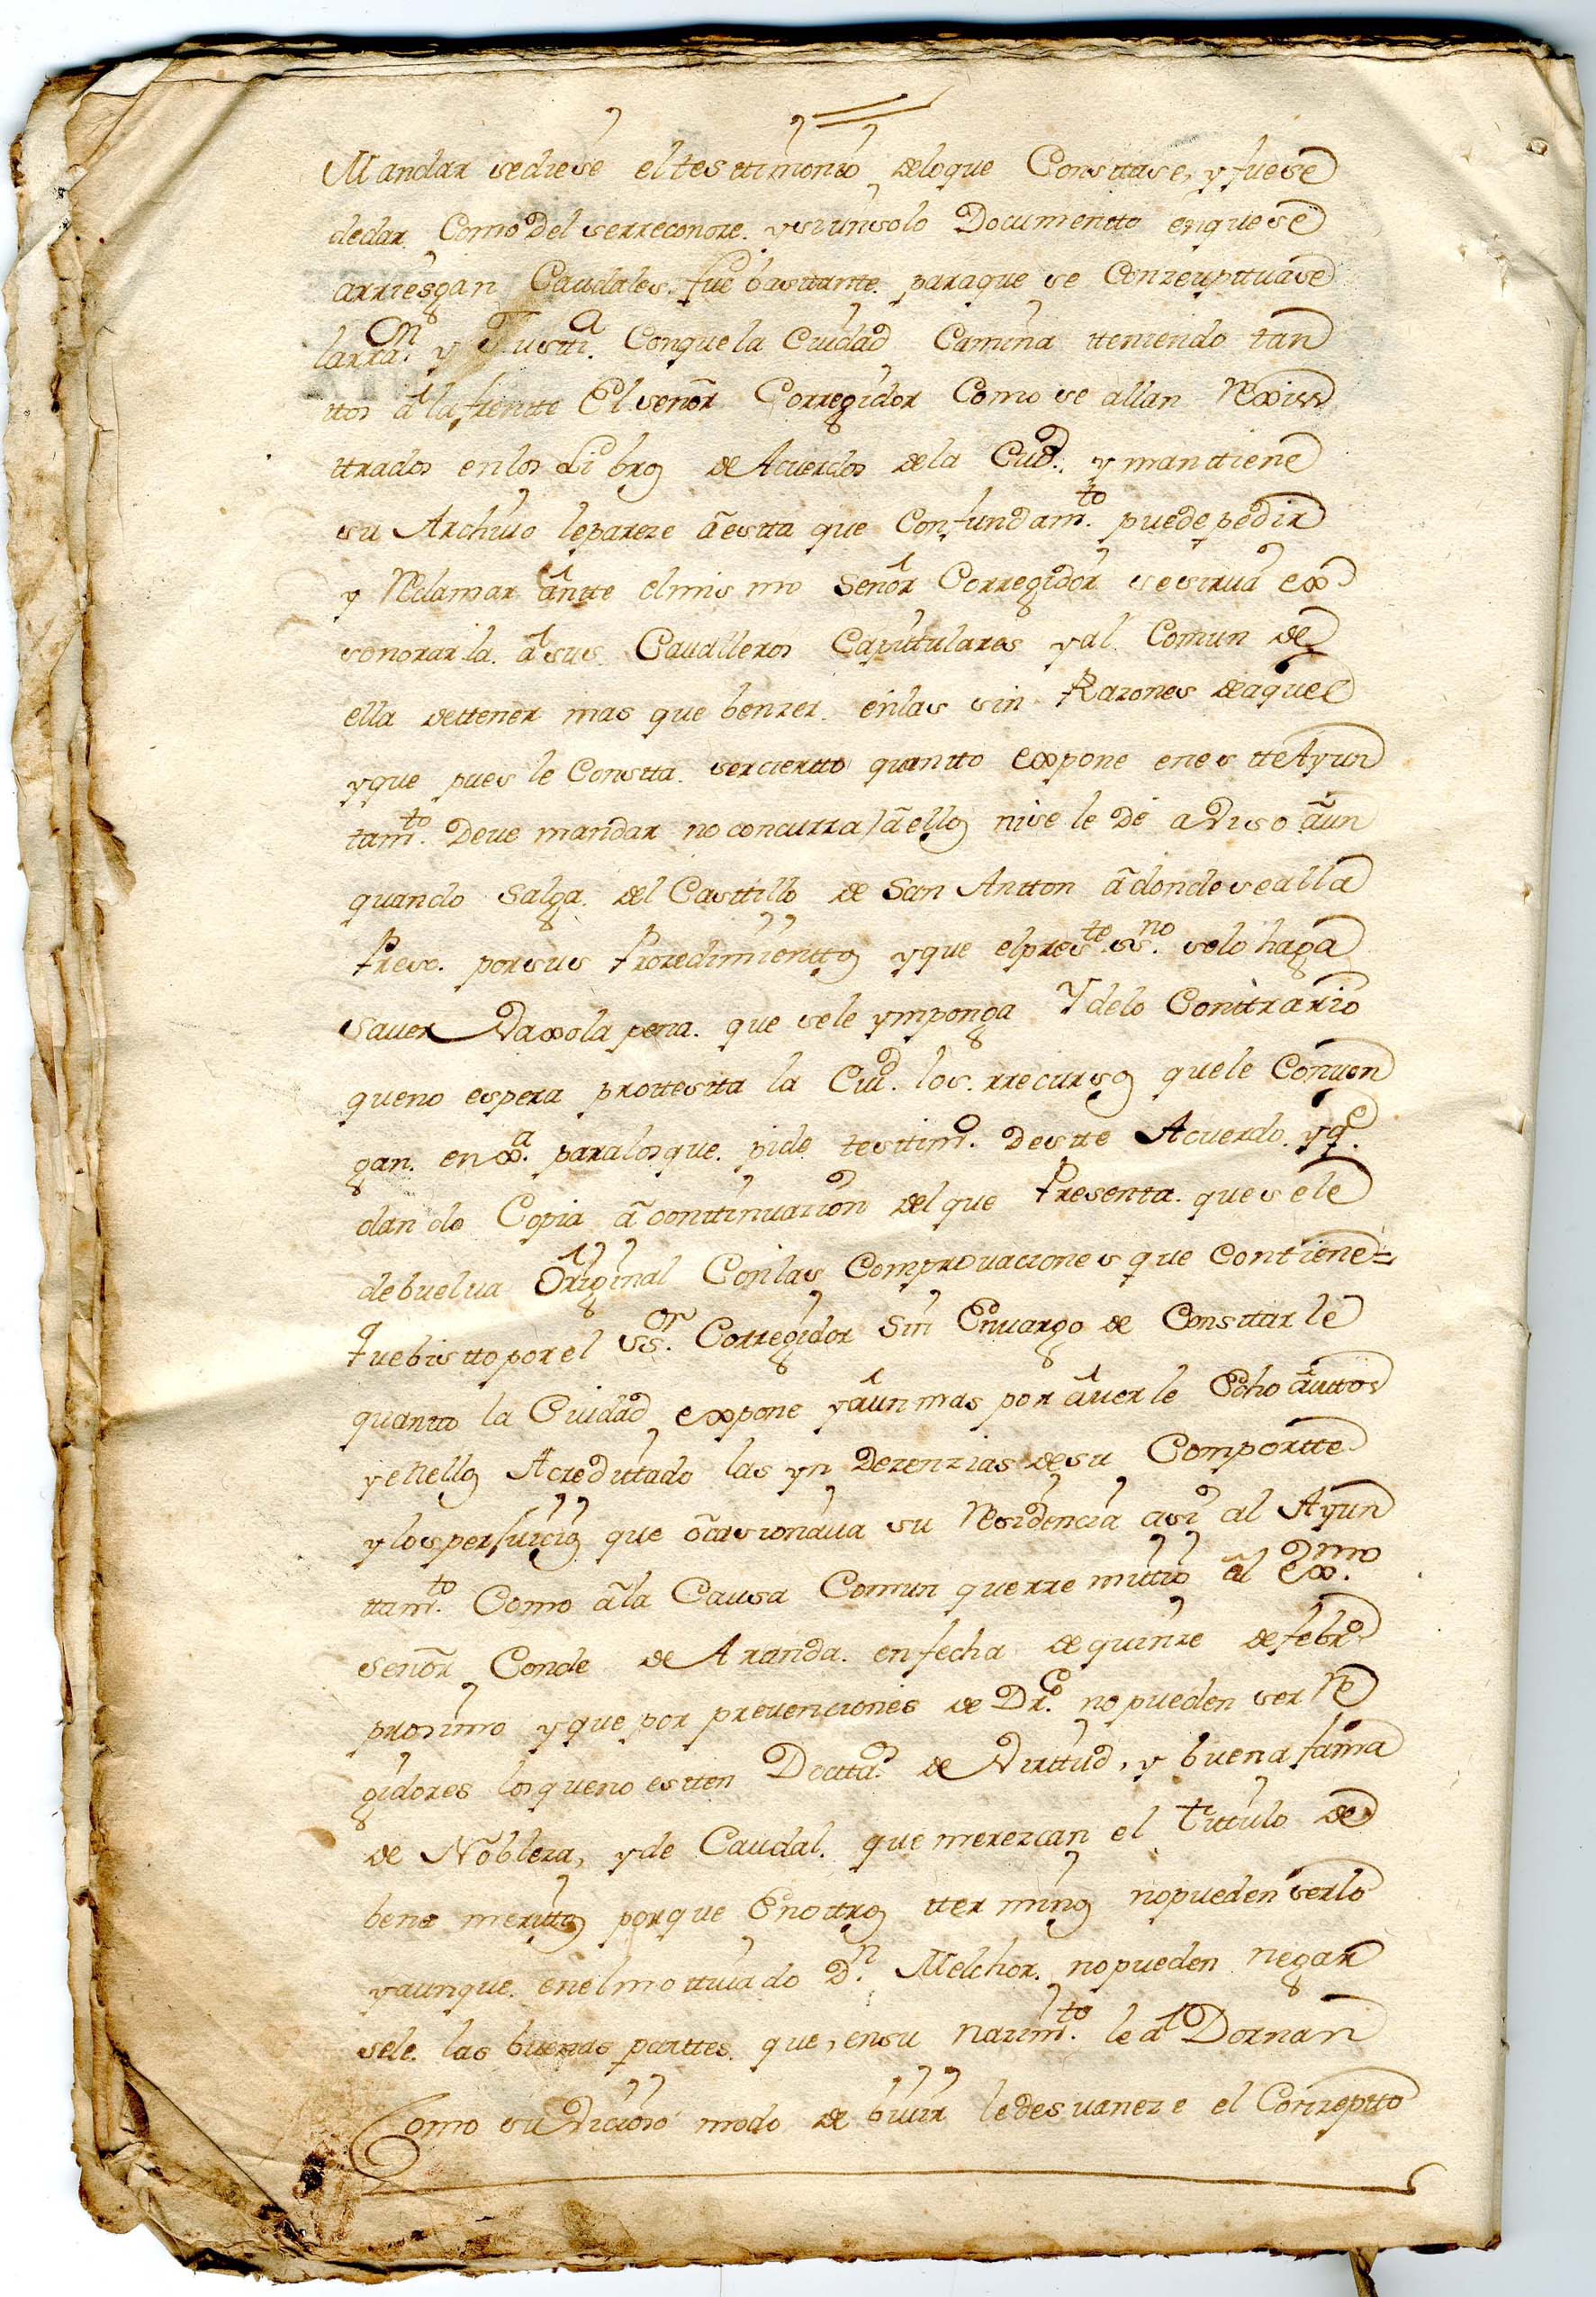 Mandar sediese eltesttimonio deloque Consttase, y fuese
dedar. Como del serreconoze. ysiunsolo Documentto enquese
arriesgan Caudales. fue basttante. paraque se Conzeupttuase
larraon. y Justtia. Conquela Ciudad Camina tteniendo tan
ttos a la frentte El señor Corregidor Como se allan Rexis
ttrados enlos Libros de Acuerdos dela Ciud., y manttiene
su Archivo lepareze aestta que Confundamto. puede pedir
y Reclamar antte elmismo Señor Corregidor sesirua ex
sonorarla. a sus Caualleros Capittulares yal Comun de
ella dettener mas que benzer. enlas sin Razones deaquel
yque pues le Constta. sercierto quantto expone enestteAyun
tamto. Deve mandar noconcurra a ellos nise le De aviso aun
quando salga del Casttillo de San Antton adondesealla
Preso. porsus Prozedimienttos yque elpreste. ssno. selo haga
sauer vaxola pena. que sele ymponga Y delo Conttrario
queno espera prottestta la Ciud. los rrecursos quele Conuen
gan. enxa. paralosque. pide testtimo. Destte Acuerdo. yqe.
dando Copia aconttinuazion delque Presenta. quesele
debuelua Original Conlas Comprouaciones que contiene=
Yuebistto por el ssor. Corregidor Sin Envargo de Consttarle
quantto la Ciudad expone yaun mas por auerle Echo auttos
yenellos Acredittado las yndezenzias desu Comportte
ylosperjuicios que ocasionaua su Residencia asi al Ayun
ttamto. Como ala Causa Comun querremittio al Exmo.
señor Conde de Aranda. enfecha dequinze defebro.
proximo yque por preuenciones de Dro. nopueden ser Re
gidores losqueno estten Dotta.os de Virttud, y buena fama
de Nobleza, yde Caudal. que merezcan el Tittulo de
bene merittos porque Enottros tterminos nopueden serlo
yaunque. enelmottiuado Dn. Melchor. nopueden negar
sele. las buenas parttes. que, ensu nazimto. le aDornan
Como su vicioso modo de biuir ledesuaneze el Conzeptto